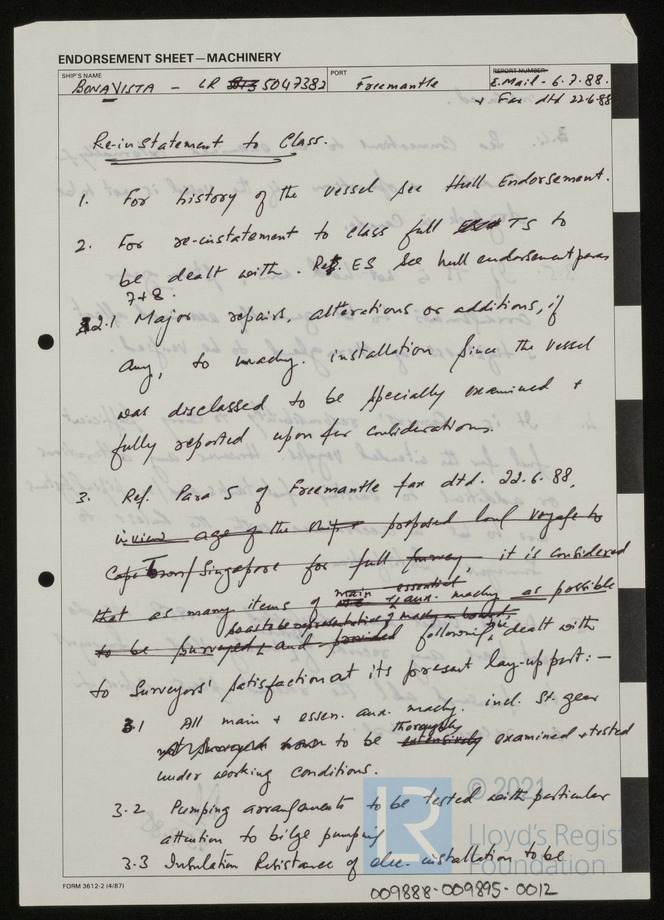 ENDORSEMENT SHEET—MACHINERY
SHIP'S NAME
BONAVISTA - LR 5047382
PORT
Freemantle
REPORT NUMBER
E.Mail - 6.7.88.
+ Fax dtd 22.6.88
Re-instatement to Class.
1. For history of the vessel see Hull Endorsement.
2. For re-instatement to class full TS to
be dealt with. Ref. ES see hull endorsement paras
7+8.
2.1 Major repairs, alterations or additions, if
any, to machy. installation since the vessel
was disclassed to be specially examined +
fully reported upon for considerations.
3. Ref. Para 5 of Freemantle fax dtd. 22.6.88,
in view age of the ship + proposed voyage to
Cape Town/Singapore for full survey, it is considered
main essential
that as many items of aux. machy as possible
so as to be representative of machy on board
to be surveyed, and provided following dealt with
to Surveyors' satisfaction at its present lay-up port: -
3.1 All main + essen. aux. machy. incl. St. gear
thoroughly
to be extensively examined + tested
under working conditions.
3.2 Pumping arrangements to be tested with particular
attention to bilge pumping
3.3 Insulation Resistance of elec. installation to be
© 2021
LR
Lloyd's Register
Foundation
FORM 3612-2 (4/87)
009888-009895-0012